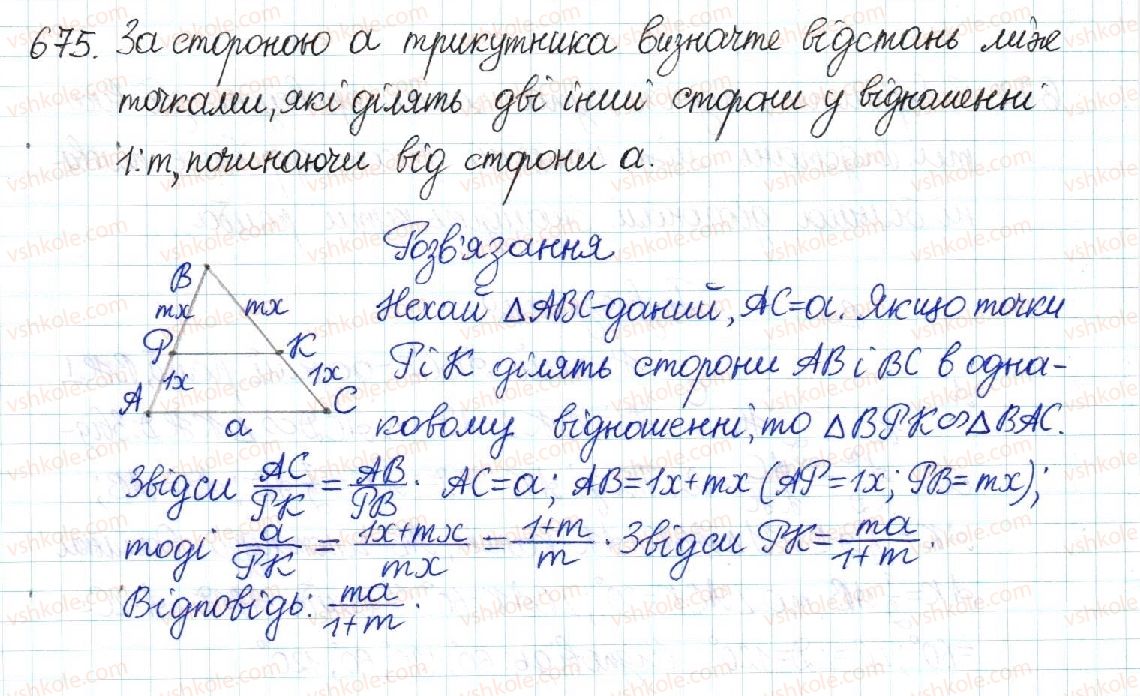 675. За стороною a трикутника визначте відстань між
точками, які ділять дві інші сторони у відношенні
1:m, починаючи від сторони a.
Розв'язання
B
mx
mx
P
K
1x
1x
A
C
a
Нехай △ABC-даний, AC=a. Якщо точки
P і K ділять сторони AB і BC в одна-
ковому відношенні, то △BPK∽△BAC.
Звідси AC/PK = AB/PB. AC=a; AB=1x+mx (AP=1x; PB=mx);
тоді a/PK = 1x+mx/mx = 1+m/m. Звідси PK = ma/1+m.
Відповідь: ma/1+m.
vshkole.com